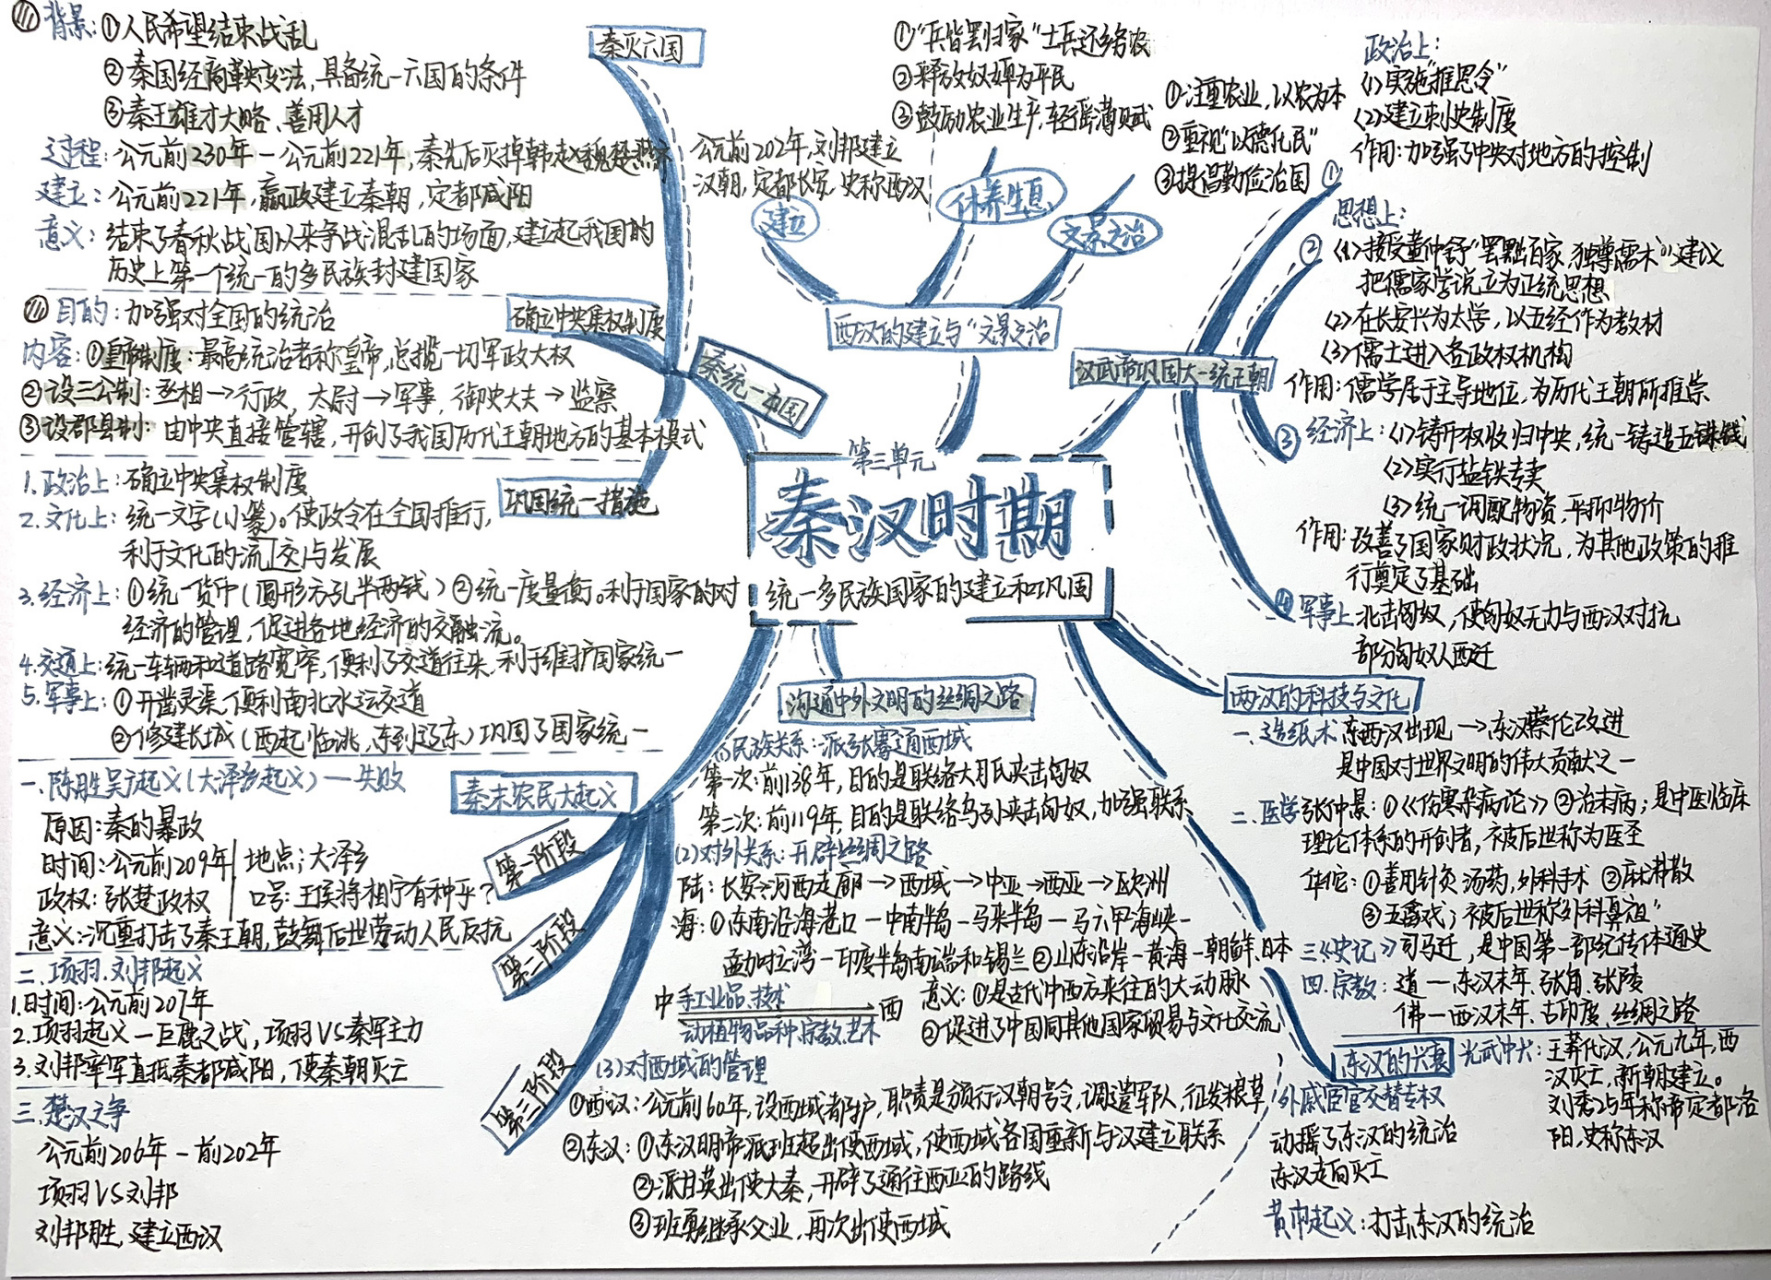 第三单元
秦汉时期
统一多民族国家的建立和巩固
秦统一中国
秦灭六国
背景:①人民希望结束战乱
②秦国经商鞅变法,具备统一六国的条件
③秦王雄才大略、善用人才
过程:公元前230年—公元前221年,秦先后灭掉韩赵魏楚燕
建立:公元前221年,嬴政建立秦朝,定都咸阳
意义:结束了春秋战国以来争战混乱的场面,建立起我国的
历史上第一个统一的多民族封建国家
确立中央集权制度
目的:加强对全国的统治
内容:①皇帝制度:最高统治者称皇帝,总揽一切军政大权
②设三公制:丞相→行政,太尉→军事,御史大夫→监察
③设郡县制:由中央直接管辖,开创了我国历代王朝地方的基本模式
巩固统一措施
1.政治上:确立中央集权制度
2.文化上:统一文字(小篆)。使政令在全国推行,
利于文化的流交与发展
3.经济上:①统一货币(圆形方孔半两钱)②统一度量衡。利于国家的对
经济的管理,促进各地经济的交融流。
4.交通上:统一车辆和道路宽窄,便利了交通往来,利于维护国家统一
5.军事上:①开凿灵渠,便利南北水运交通
②修建长城(西起临洮,东到辽东)巩固了国家统一
秦末农民大起义
第一阶段
第二阶段
第三阶段
一.陈胜吴广起义(大泽乡起义)—失败
原因:秦的暴政
时间:公元前209年 地点:大泽乡
政权:张楚政权 口号:王侯将相宁有种乎?
意义:沉重打击了秦王朝,鼓舞后世劳动人民反抗
二.项羽.刘邦起义
1.时间:公元前207年
2.项羽起义—巨鹿之战,项羽VS秦军主力
3.刘邦率军直抵秦都咸阳,使秦朝灭亡
三.楚汉之争
公元前206年—前202年
项羽VS刘邦
刘邦胜,建立西汉
西汉的建立与“文景之治
建立
公元前202年,刘邦建立
汉朝,定都长安,史称西汉
休养生息
①“兵皆罢归家”士兵还乡务农
②释放奴婢为平民
③鼓励农业生产,轻徭薄赋
文景之治
①注重农业,以农为本
②重视“以德化民”
③提倡勤俭治国
汉武帝巩固大一统王朝
①
政治上:
(1)实施“推恩令”
(2)建立刺史制度
作用:加强了中央对地方的控制
②
思想上:
(1)接受董仲舒“罢黜百家,独尊儒术”建议
把儒家学说立为正统思想
(2)在长安兴办太学,以五经作为教材
(3)儒士进入各政权机构
作用:儒学居于主导地位,为历代王朝所推崇
③经济上:(1)铸币权收归中央,统一铸造五铢钱
(2)实行盐铁专卖
(3)统一调配物资,平抑物价
作用:改善了国家财政状况,为其他政策的推
行奠定了基础
④军事上 北击匈奴,使匈奴无力与西汉对抗
部分匈奴人西迁
沟通中外文明的丝绸之路
(1)民族关系:派张骞通西域
第一次:前138年,目的是联络大月氏夹击匈奴
第二次:前119年,目的是联络乌孙夹击匈奴,加强联系
(2)对外关系:开辟丝绸之路
陆:长安→河西走廊→西域→中亚→西亚→欧洲
海:①东南沿海港口—中南半岛—马来半岛—马六甲海峡—
孟加拉湾—印度半岛南端和锡兰②山东沿岸—黄海—朝鲜、日本
中 手工业品、技术 西
动植物品种、宗教、艺术
意义:①是古代中西方来往的大动脉
②促进了中国同其他国家贸易与文化交流
(3)对西域的管理
①西汉:公元前60年,设西域都护,职责是颁行汉朝号令,调遣军队,征发粮草
②东汉:①东汉明帝派班超出使西域,使西域各国重新与汉建立联系
②派甘英出使大秦,开辟了通往西亚的路线
③班勇继承父业,再次出使西域
两汉的科技与文化
一.造纸术 东西汉出现→东汉蔡伦改进
是中国对世界文明的伟大贡献之一
二.医学 张仲景:①《伤寒杂病论》②治未病;是中医临床
理论体系的开创者,被后世称为医圣
华佗:①善用针灸 汤药,外科手术 ②麻沸散
③五禽戏;被后世称外科鼻祖”
三《史记》司马迁,是中国第一部纪传体通史
四.宗教:道—东汉末年、张角、张陵
佛—西汉末年、古印度、丝绸之路
东汉的兴衰
光武中兴:王莽代汉,公元九年,西
汉灭亡,新朝建立。
刘秀25年称帝定都洛
阳,史称东汉
外戚宦官交替专权
动摇了东汉的统治
东汉走向灭亡
黄巾起义:打击东汉的统治